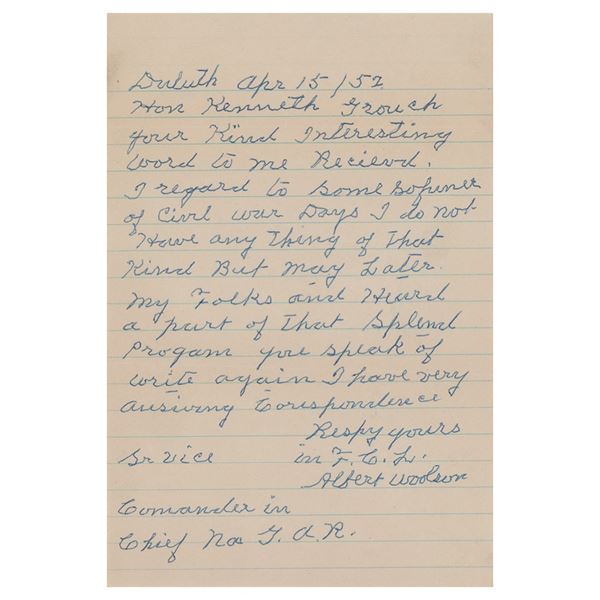 Duluth Apr 15/52
Hon Kenneth Grouch
your Kind Interesting
word to me Recievd.
I regard to some Sofuner
of Civil war Days I do not
Have any Thing of That
Kind But may Later.
My Folks and Heard
a part of That Splend
Progam you speak of
write again I have very
Corespondence
Respy yours
Sr vice in F. C. L.
Albert Woolson
Comander in
Chief Na G. A. R.